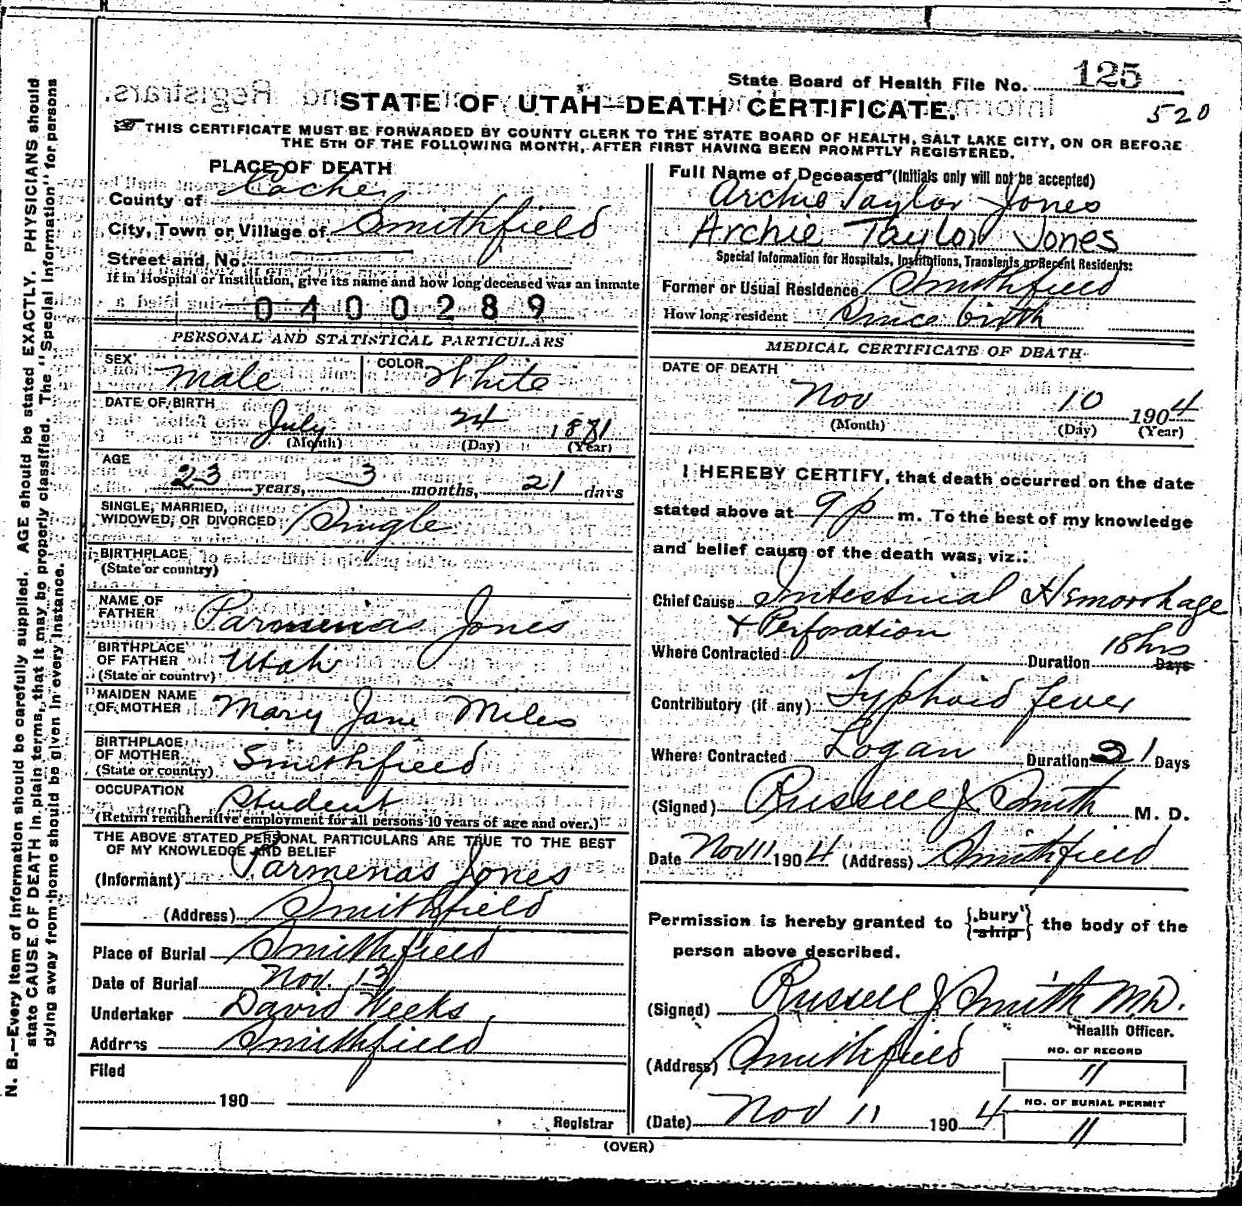 State Board of Health File No. 125
STATE OF UTAH—DEATH CERTIFICATE.
520
THIS CERTIFICATE MUST BE FORWARDED BY COUNTY CLERK TO THE STATE BOARD OF HEALTH, SALT LAKE CITY, ON OR BEFORE
THE 5TH OF THE FOLLOWING MONTH, AFTER FIRST HAVING BEEN PROMPTLY REGISTERED.
N. B.—Every item of information should be carefully supplied. AGE should be stated EXACTLY. PHYSICIANS should
state CAUSE OF DEATH in plain terms, that it may be properly classified. The "Special Information" for persons
dying away from home should be given in every instance.
PLACE OF DEATH
County of Cache
City, Town or Village of Smithfield
Street and No.
If in Hospital or Institution, give its name and how long deceased was an inmate
0400289
PERSONAL AND STATISTICAL PARTICULARS
SEX Male COLOR White
DATE OF BIRTH
July 24 1881
(Month) (Day) (Year)
AGE
23 years, 3 months, 21 days
SINGLE, MARRIED,
WIDOWED, OR DIVORCED Single
BIRTHPLACE
(State or country)
NAME OF
FATHER Parmenas Jones
BIRTHPLACE
OF FATHER Utah
(State or country)
MAIDEN NAME
OF MOTHER Mary Jane Miles
BIRTHPLACE
OF MOTHER Smithfield
(State or country)
OCCUPATION Student
(Return remunerative employment for all persons 10 years of age and over.)
THE ABOVE STATED PERSONAL PARTICULARS ARE TRUE TO THE BEST
OF MY KNOWLEDGE AND BELIEF
(Informant) Parmenas Jones
(Address) Smithfield
Place of Burial Smithfield
Date of Burial Nov. 13
Undertaker David Weeks
Address Smithfield
Filed
190
Registrar
Full Name of Deceased (Initials only will not be accepted)
Archie Taylor Jones
Archie Taylor Jones
Special Information for Hospitals, Institutions, Transients or Recent Residents:
Former or Usual Residence Smithfield
How long resident Since birth
MEDICAL CERTIFICATE OF DEATH
DATE OF DEATH
Nov 10 1904
(Month) (Day) (Year)
I HEREBY CERTIFY, that death occurred on the date
stated above at 9 p m. To the best of my knowledge
and belief cause of the death was, viz.:
Chief Cause Intestinal Hemorrhage
+ Perforation
Where Contracted Duration 18 hrs Days
Contributory (if any) Typhoid fever
Where Contracted Logan Duration 21 Days
(Signed) Russell J Smith M. D.
Date Nov 11 1904 (Address) Smithfield
Permission is hereby granted to {bury ship} the body of the
person above described.
(Signed) Russell J Smith MD.
Health Officer.
(Address) Smithfield
NO. OF RECORD
11
(Date) Nov 11 1904
NO. OF BURIAL PERMIT
11
(OVER)